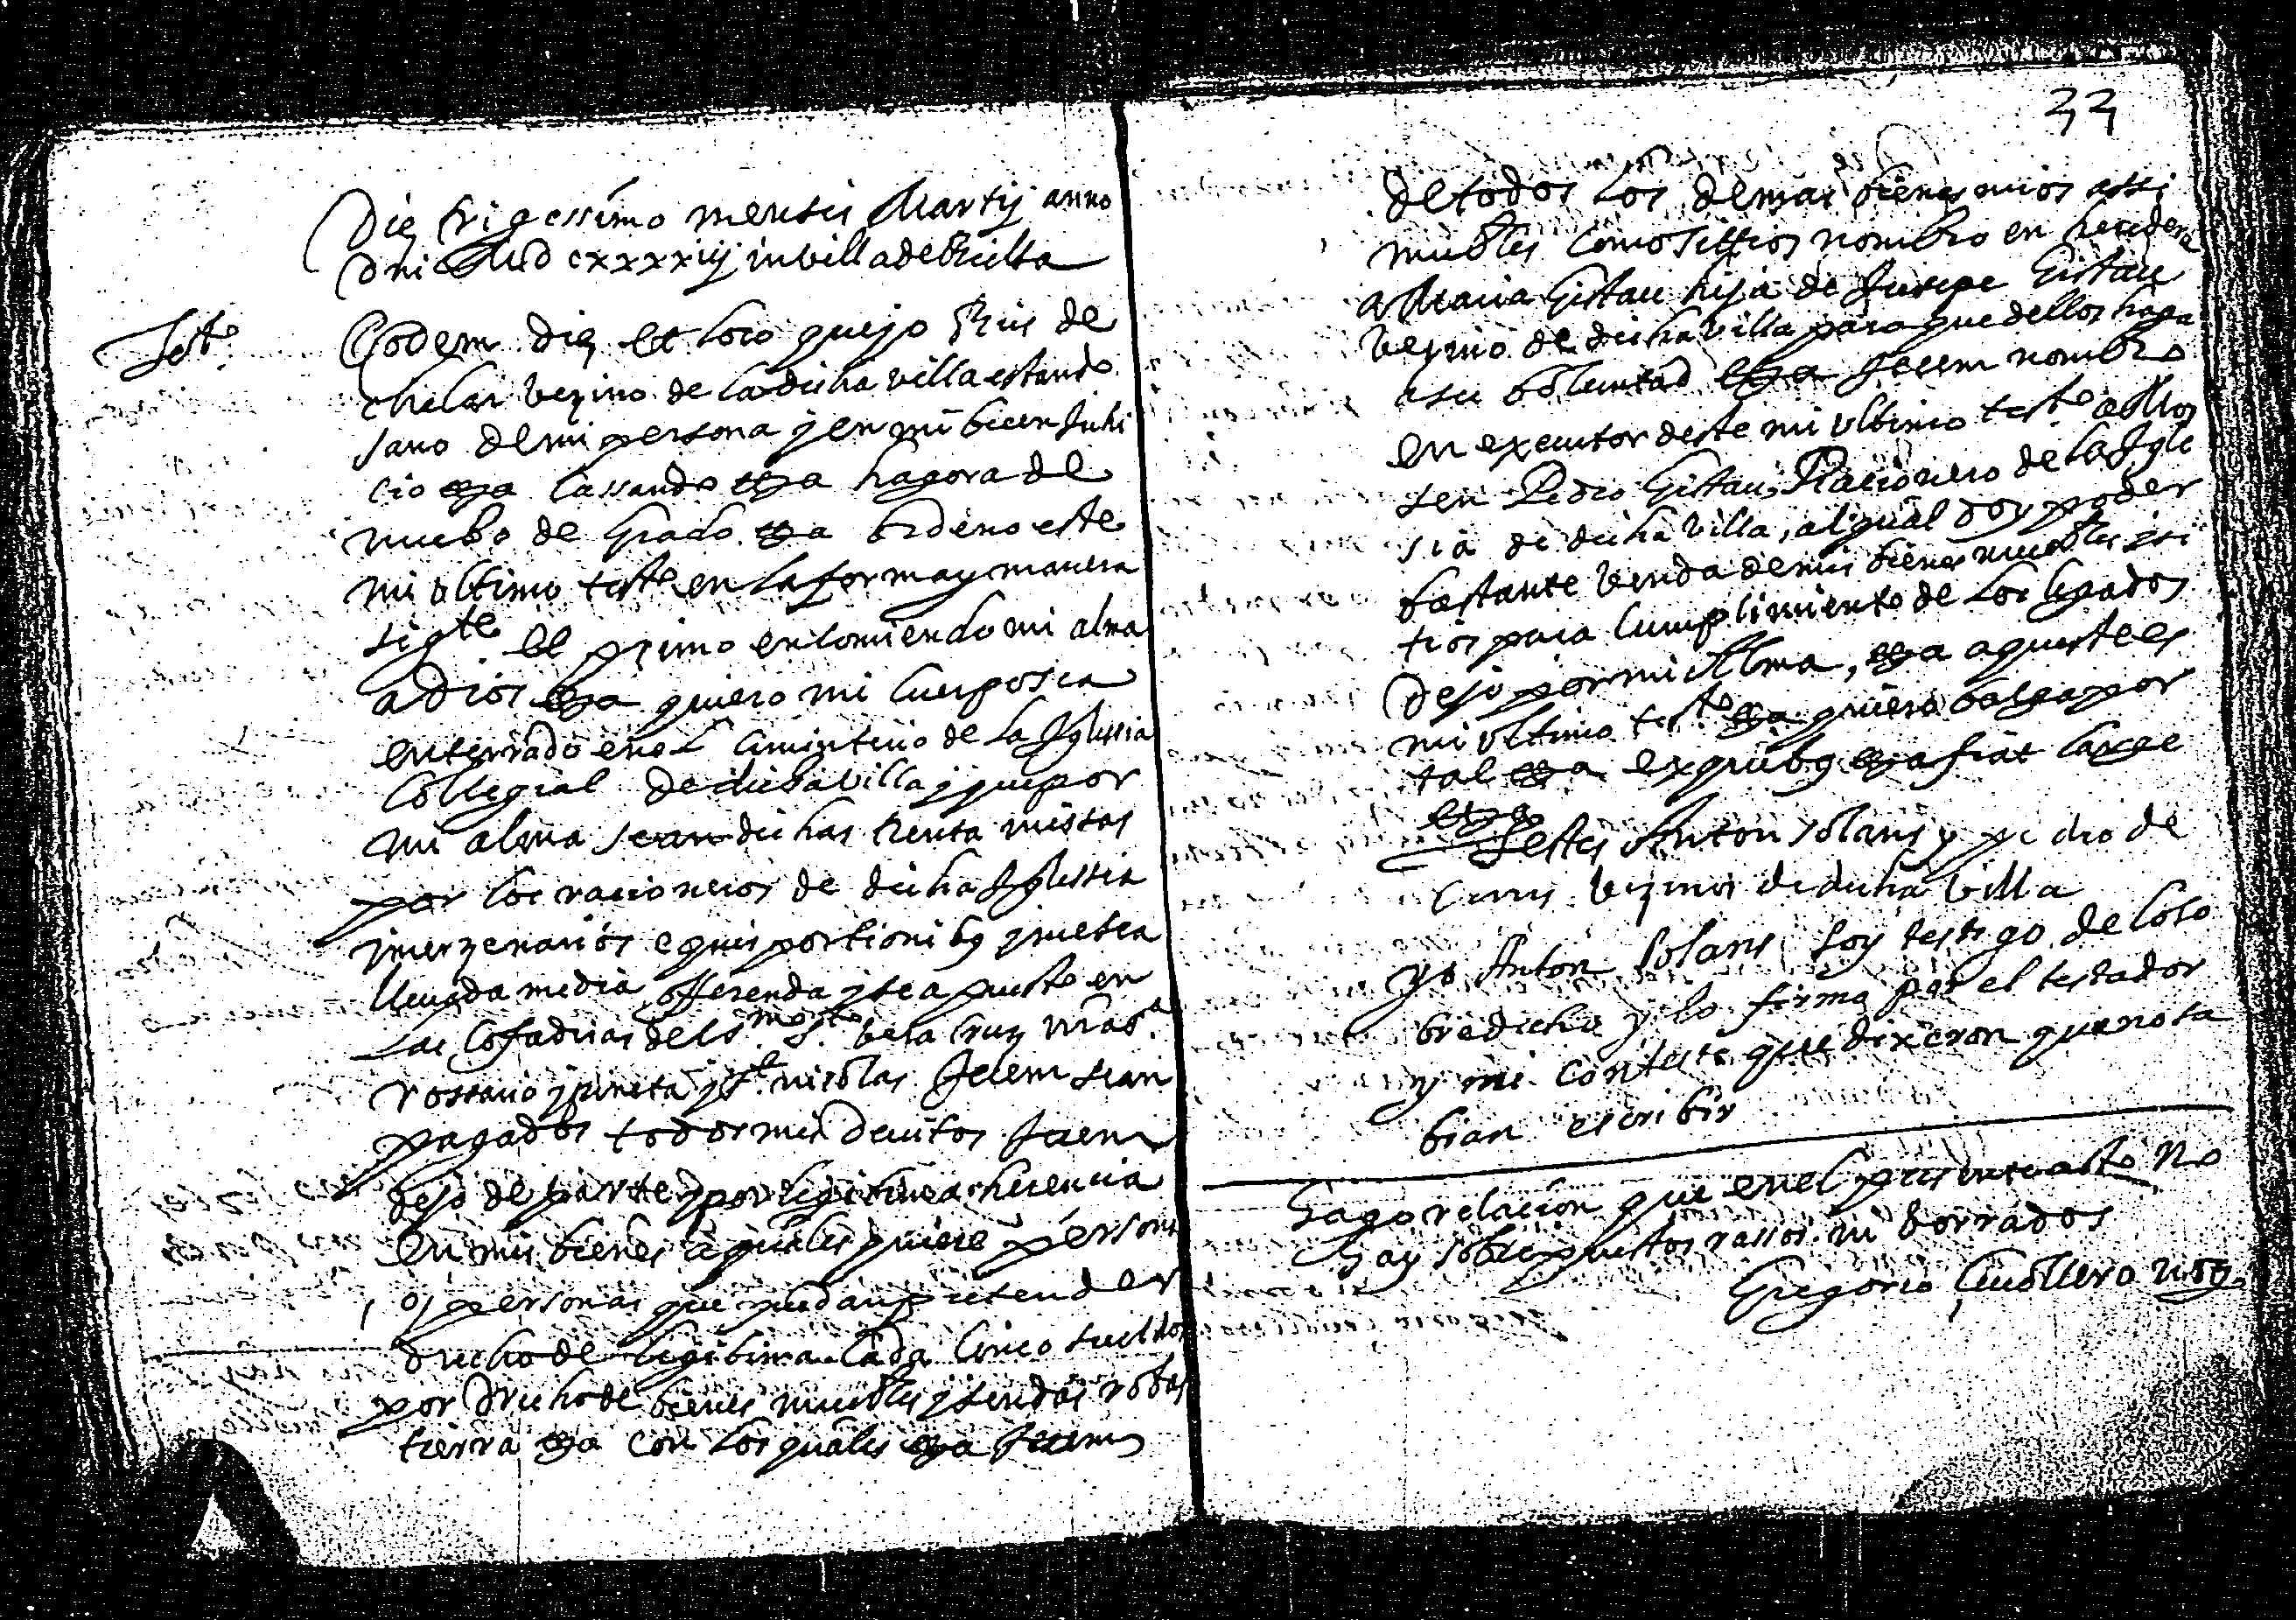 Die trigessimo mensis Martij anno
Dni MDCxxxxiij in villa de
Test.to
Eodem die et loco que yo de
vezino de la dicha villa estando
sano de mi persona y en mi buen juhi
cio etca cassando etca hagora de
nuebo de grado etca ordeno este
mi ultimo testto en la forma y manera
sigte et primo encomiendo mi alma
a dios etca quiero mi cuerpo sea
enterrado en el ciminterio de la Iglessia
Collegial de dicha villa y que por
mi alma sean dichas trenta missas
por los racioneros de dicha Iglessia
y merzenarios equis portionibq y me sea
llevada media offerenda y sea puesto en
las cofadrias del Smo. Sto. bera Cruz nra Sa.
rossario y S.t nicolas Item sean
pagados todos mis deutos Item
dejo de parte y por legitima herencia
en mis bienes a quales quiere persona
o personas que puedan pretender
drecho de legitima cada cinco sueldos
por drecho de bienes muebles y sendas robas
tierra etca con los quales etca Item
33
de todos los demas bienes mios assi
muebles como sittios nombro en heredera
a Maria Gistau hija de Jusepe Gistau
vezino de dicha villa para que dellos haga
a su boluntad etca Item nombro
en executor deste mi ultimo testto a Mos
sen Pedro Gistau Racionero de la Igle
sia de dicha villa, al qual doy poder
bastante venda de mis bienes muebles y si
tios para cumplimiento de los legados
dejo por mi Alma, etca aqueste es
mi ultimo testto etca quiero balga por
tal etca ex quibq etca fiat large
etca
Testes Anton Solans y pedro de
vezinos de dicha villa
yo Anton Solans soy testigo de lo so
bredicho y lo firmo por el testador
y mi conteste que dixeron que no sa
bian escribir
Hago relacion que en el presente acto no
hay sobrepuestos rassos ni borrados
Gregorio Cauallero noty